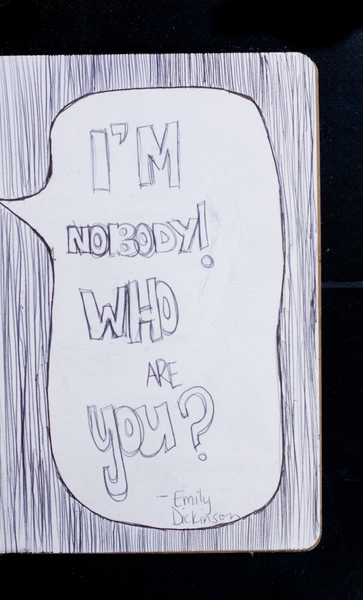 I'M
NOBODY!
WHO
ARE
you?
- Emily
Dickinson